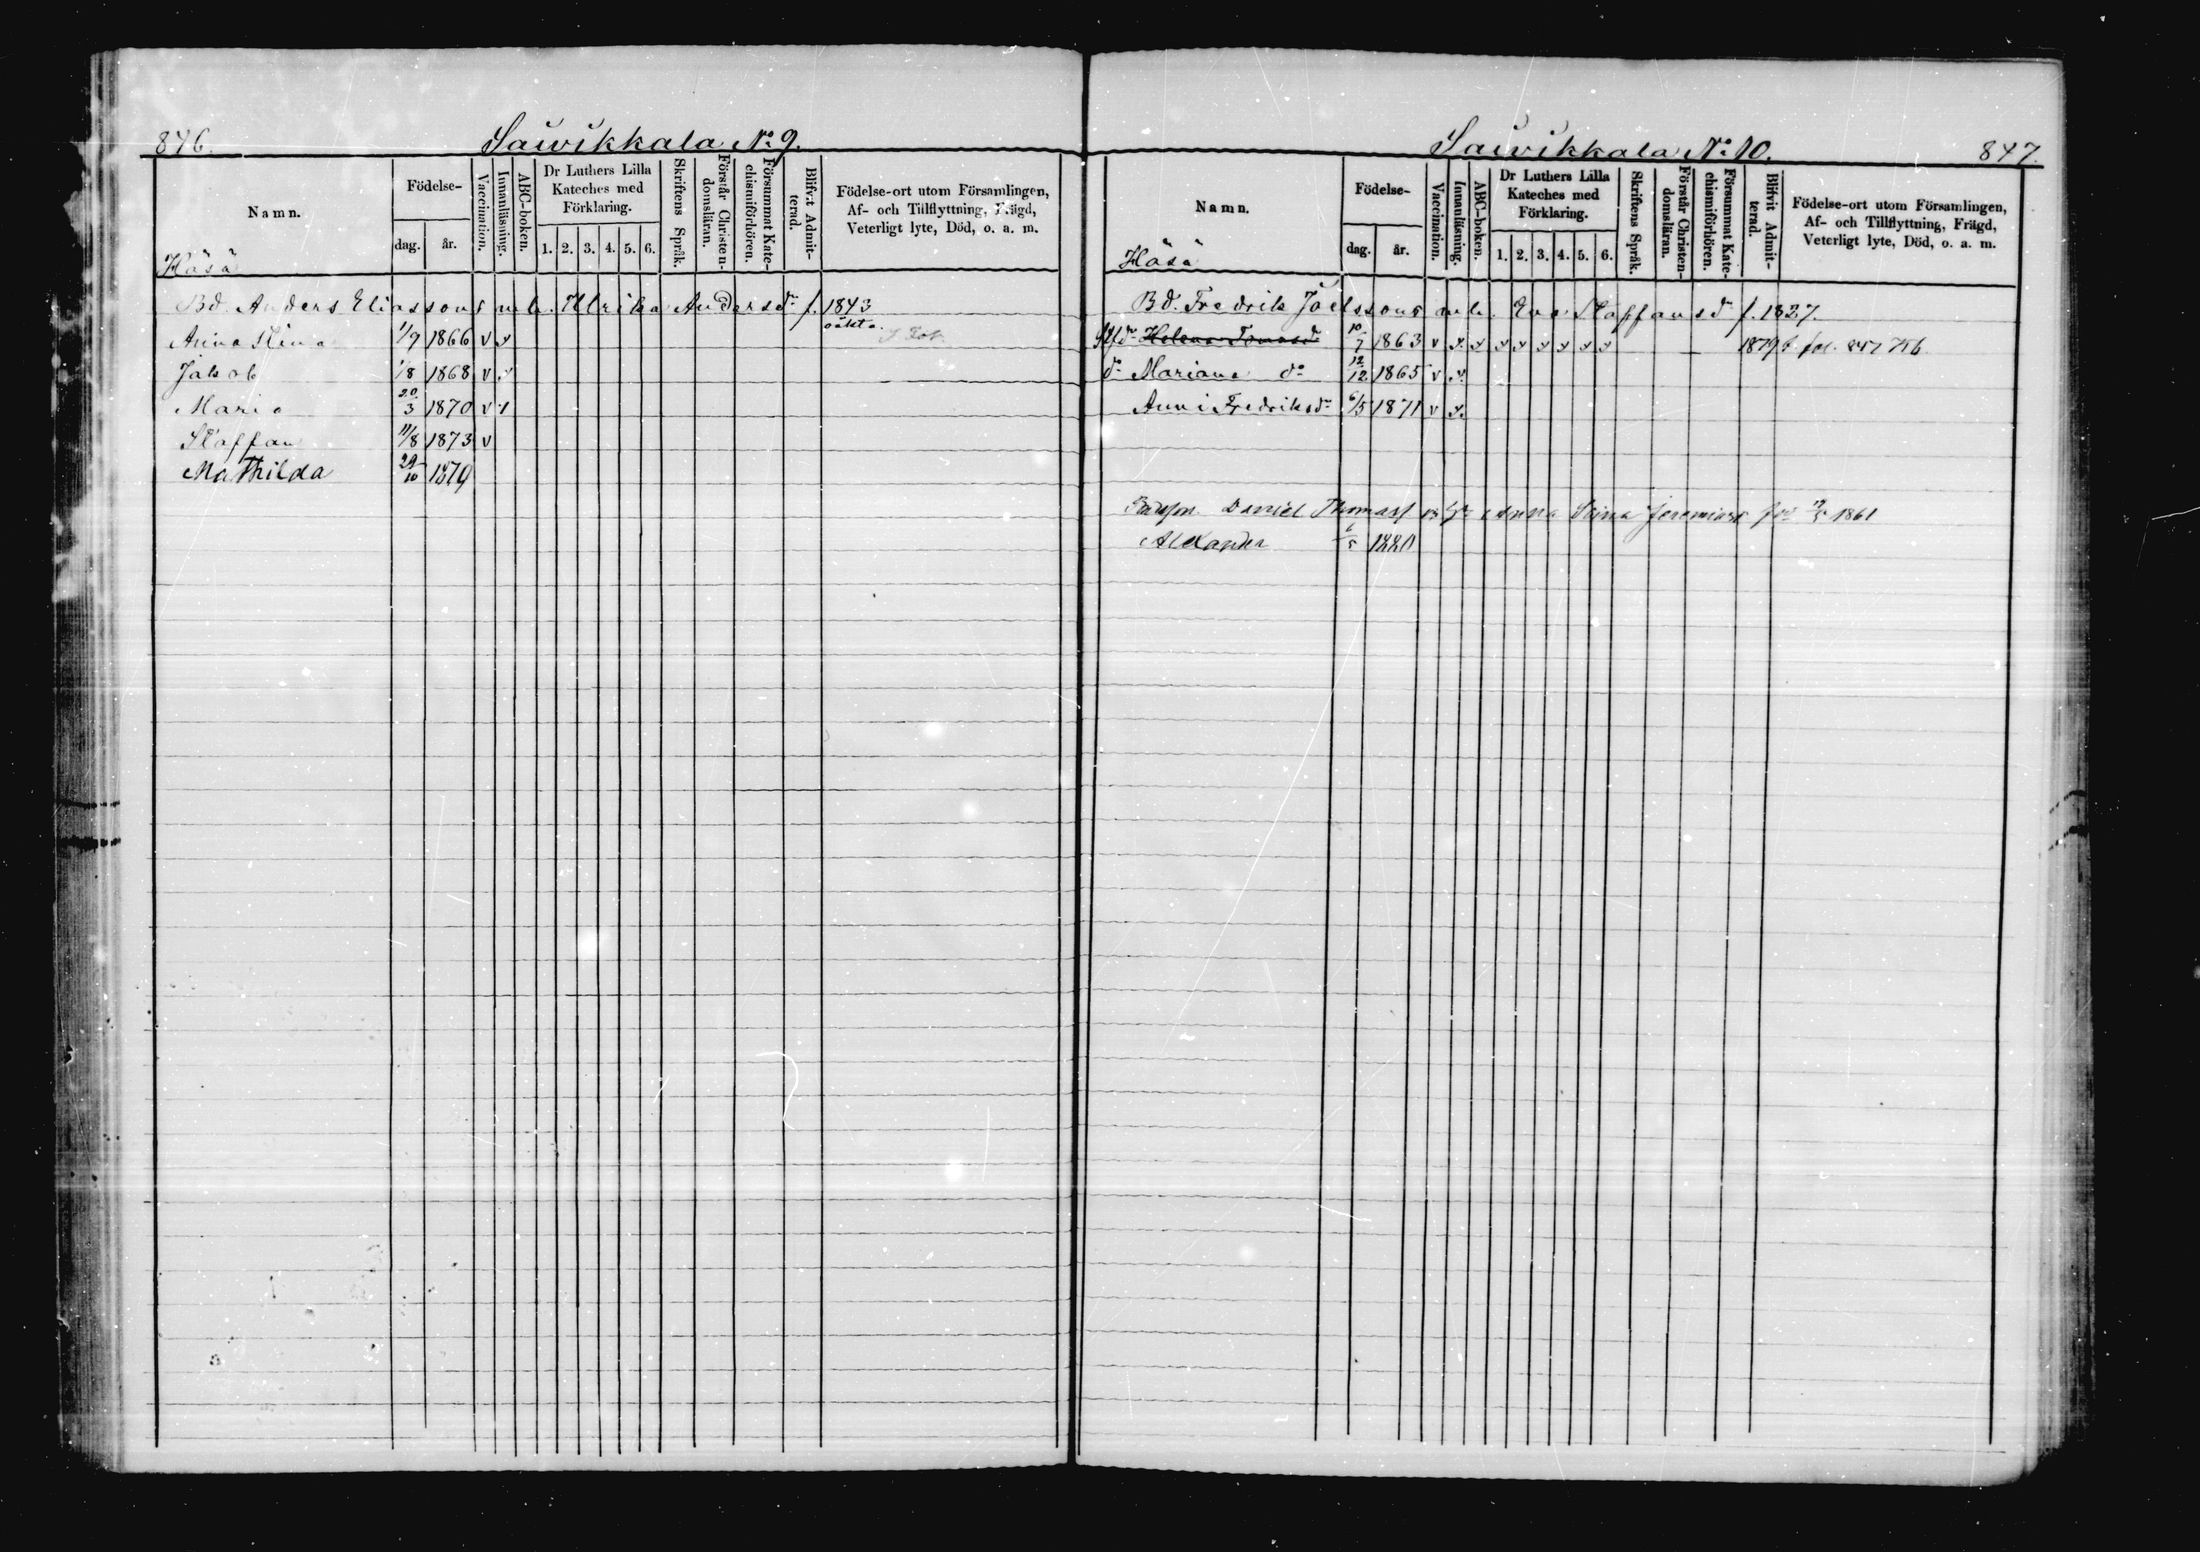 846.
Saivikkala № 9.
Namn.
Födelse-
dag.
år.
Vaccination.
Innanläsning.
ABC-boken.
Dr Luthers Lilla Kateches med Förklaring.
1. 2. 3. 4. 5. 6.
Skriftens Språk.
Förstår Christendomsläran.
Försummat Katechismiförhören.
Blifvit Admitterad.
Födelse-ort utom Församlingen,
Af- och Tillflyttning, Frägd,
Veterligt lyte, Död, o. a. m.
Häsä
Bd. Anders Eliassons enk. Ulrika Andersdr f. 1843
oäkta.
Anna Stina 1/9 1866 v
Jakob 1/8 1868 v
Maria 20/3 1870 v
Staffan 11/8 1873 v
Mathilda 29/10 1879
Saivikkala № 10.
847.
Namn.
Födelse-
dag.
år.
Vaccination.
Innanläsning.
ABC-boken.
Dr Luthers Lilla Kateches med Förklaring.
1. 2. 3. 4. 5. 6.
Skriftens Språk.
Förstår Christendomsläran.
Försummat Katechismiförhören.
Blifvit Admitterad.
Födelse-ort utom Församlingen,
Af- och Tillflyttning, Frägd,
Veterligt lyte, Död, o. a. m.
Häsä
Bd. Fredrik Joelssons enk. Eva Staffansdr f. 1827.
Helena Tomasdr 10/7 1863 v 1879
dr Mariana do 12/12 1865 v
Anni Fredriksdr 6/5 1871 v
Daniel Thomass Anna Stina Jeremiasd 1861
Alexander 1880